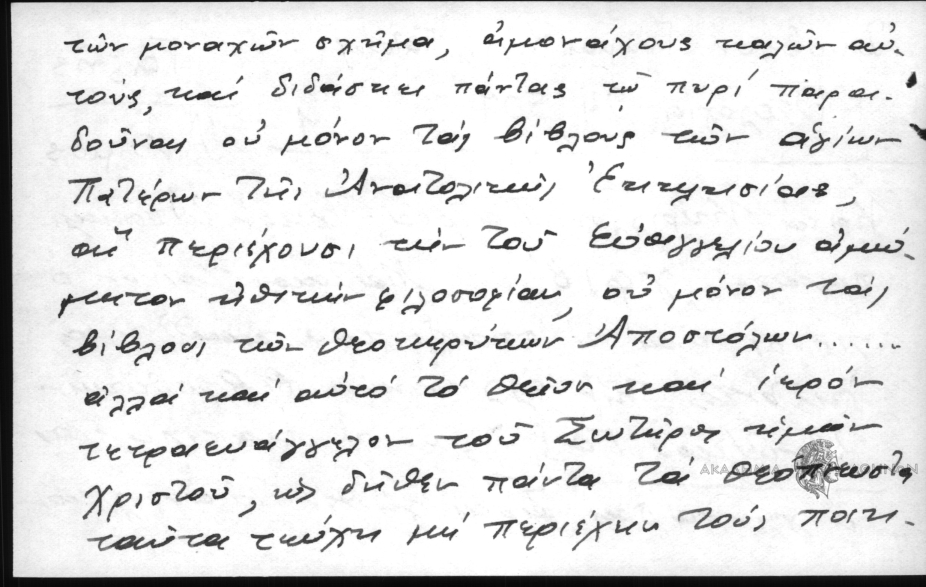 τῶν μοναχῶν σχῆμα, ἀμονάχους καλῶν αὐ-
τούς, καί διδάσκει πάντας τῷ πυρί παρα-
δοῦναι οὐ μόνον τάς βίβλους τῶν ἁγίων
Πατέρων τῆς Ἀνατολικῆς Ἐκκλησίας,
αἵ περιέχουσι τήν τοῦ Εὐαγγελίου ἀμώ-
μητον ἠθικήν φιλοσοφίαν, οὐ μόνον τάς
βίβλους τῶν θεοκηρύκων Ἀποστόλων......
ἀλλά καί αὐτό τό θεῖον καί ἱερόν
τετραευάγγελον τοῦ Σωτῆρος ἡμῶν
Χριστοῦ, ὡς δῆθεν πάντα τά θεόπνευστα
ταῦτα τεύχη μή περιέχει τούς ποιη-
ΑΚΑΔΗΜΙΑ ΑΘΗΝΩΝ